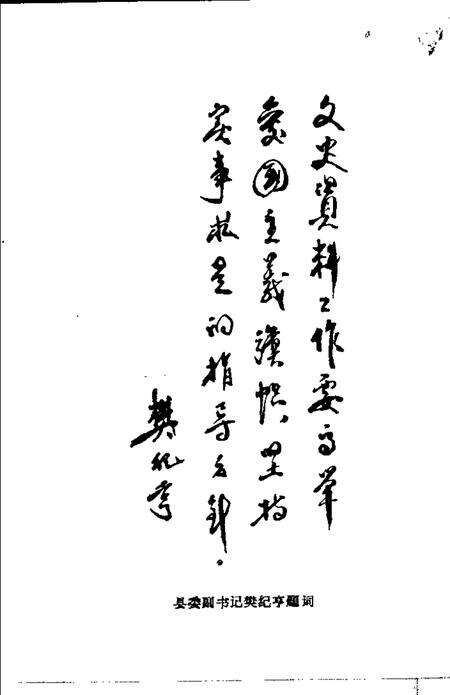 文史資料工作要高举
爱国主義旗帜,坚持
实事求是的指导方針。
樊纪亨
县委副书记樊纪亨题词